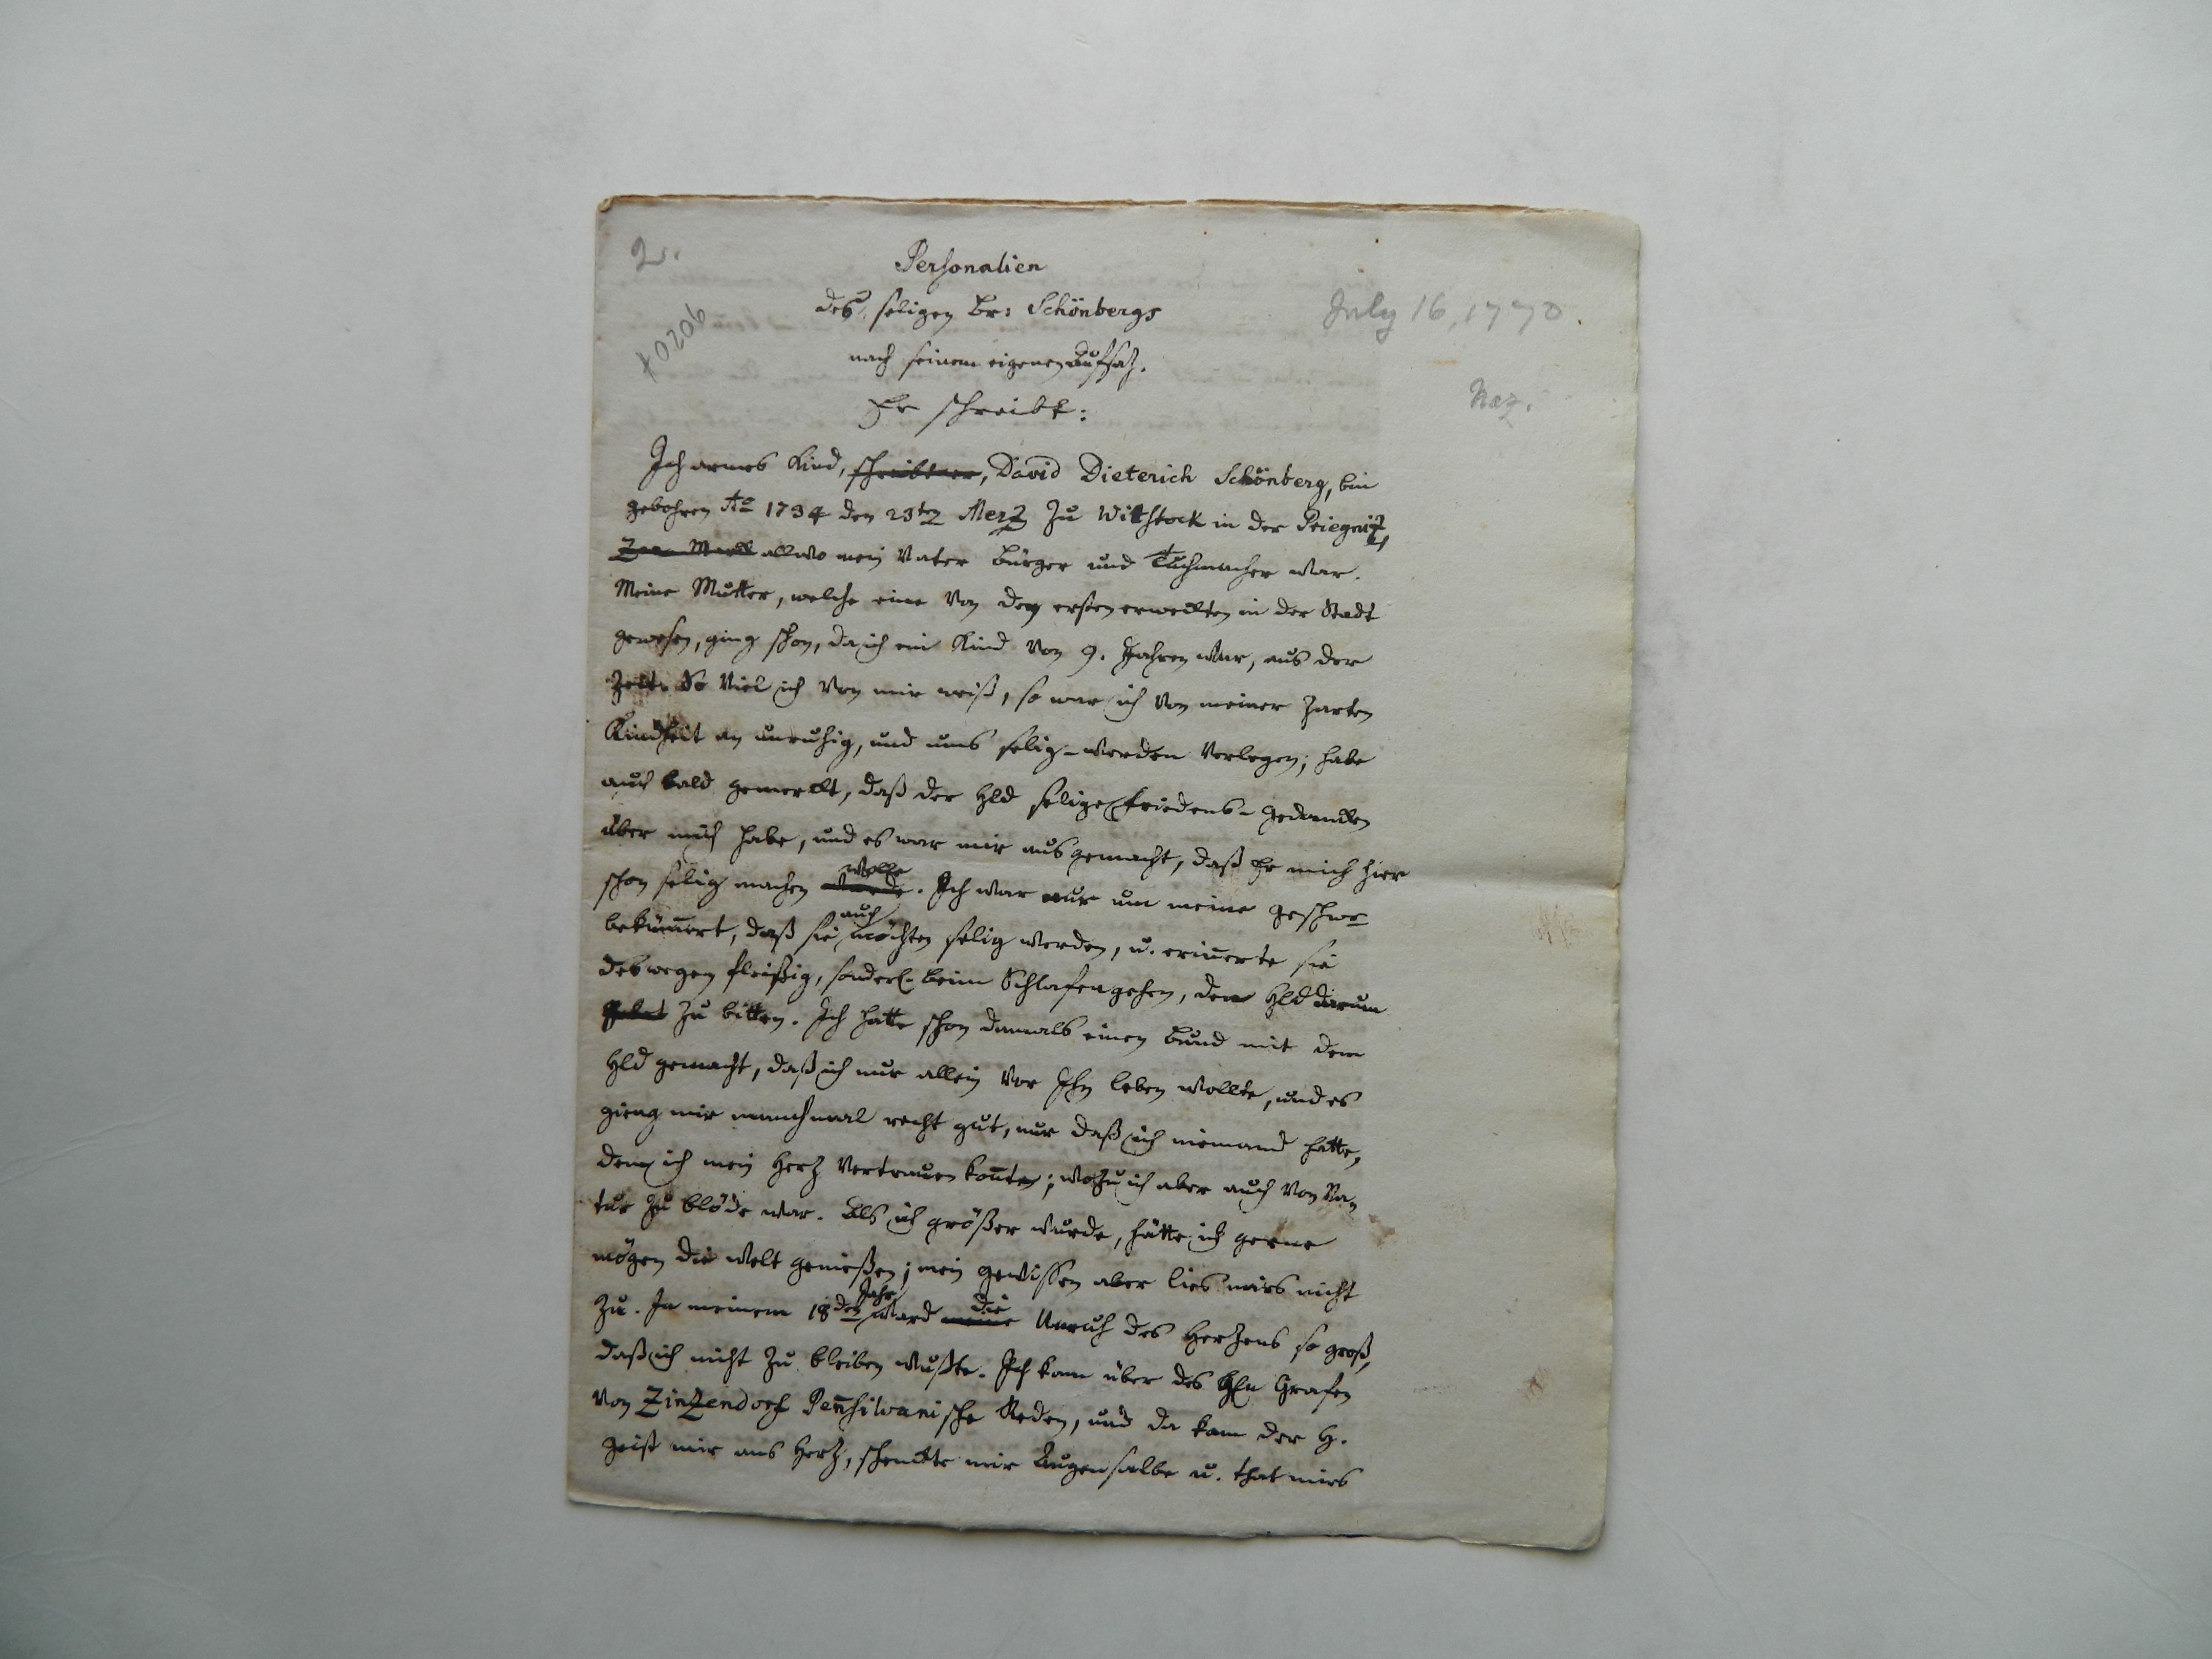 2.
f 0206
July 16, 1770.
Naz.
Personalien
des seligen Br: Schönbergs
nach seinem eigenen Aufsaz.
Er schreibt:
Ich armes Kind, David Dieterich Schönberg, bin
gebohren Ao 1734 den 23ten Merz zu Wittstock in der Priegnitz,
allwo mein Vater Bürger und Tuchmacher war.
Meine Mutter, welche eine von den ersten erweckten in der Stadt
gewesen, ging schon, da ich ein Kind von 9. Jahren war, aus der
Zeit. So viel ich von mir weiß, so war ich von meiner zarten
Kindheit an unruhig, und ums selig-werden verlegen; habe
auch bald gemerckt, daß der Hld selige Friedens-Gedancken
über mich habe, und es war mir ausgemacht, daß Er mich hier
schon selig machen wolle. Ich war nur um meine Geschwr
bekümert, daß sie auch möchten selig werden, u. erinerte sie
deswegen fleißig, sonderl. beim Schlafengehen, den Hld darum
zu bitten. Ich hatte schon damals einen Bund mit dem
Hld gemacht, daß ich nur allein vor Ihn leben wollte, und es
gieng mir manchmal recht gut, nur daß ich niemand hatte,
dem ich mein Hertz vertrauen konte; wozu ich aber auch von Na-
tur zu blöde war. Als ich größer wurde, hätte ich gerne
mögen die Welt genießen; mein Gewissen aber lies mirs nicht
zu. In meinem 18den Jahr ward die Unruh des Hertzens so groß,
daß ich nicht zu bleiben wußte. Ich kam über des Hln Grafen
von Zinzendorf Pensilvanische Reden, und da kam der H.
Geist mir ans Hertz, schenckte mir Augensalbe u. that mirs